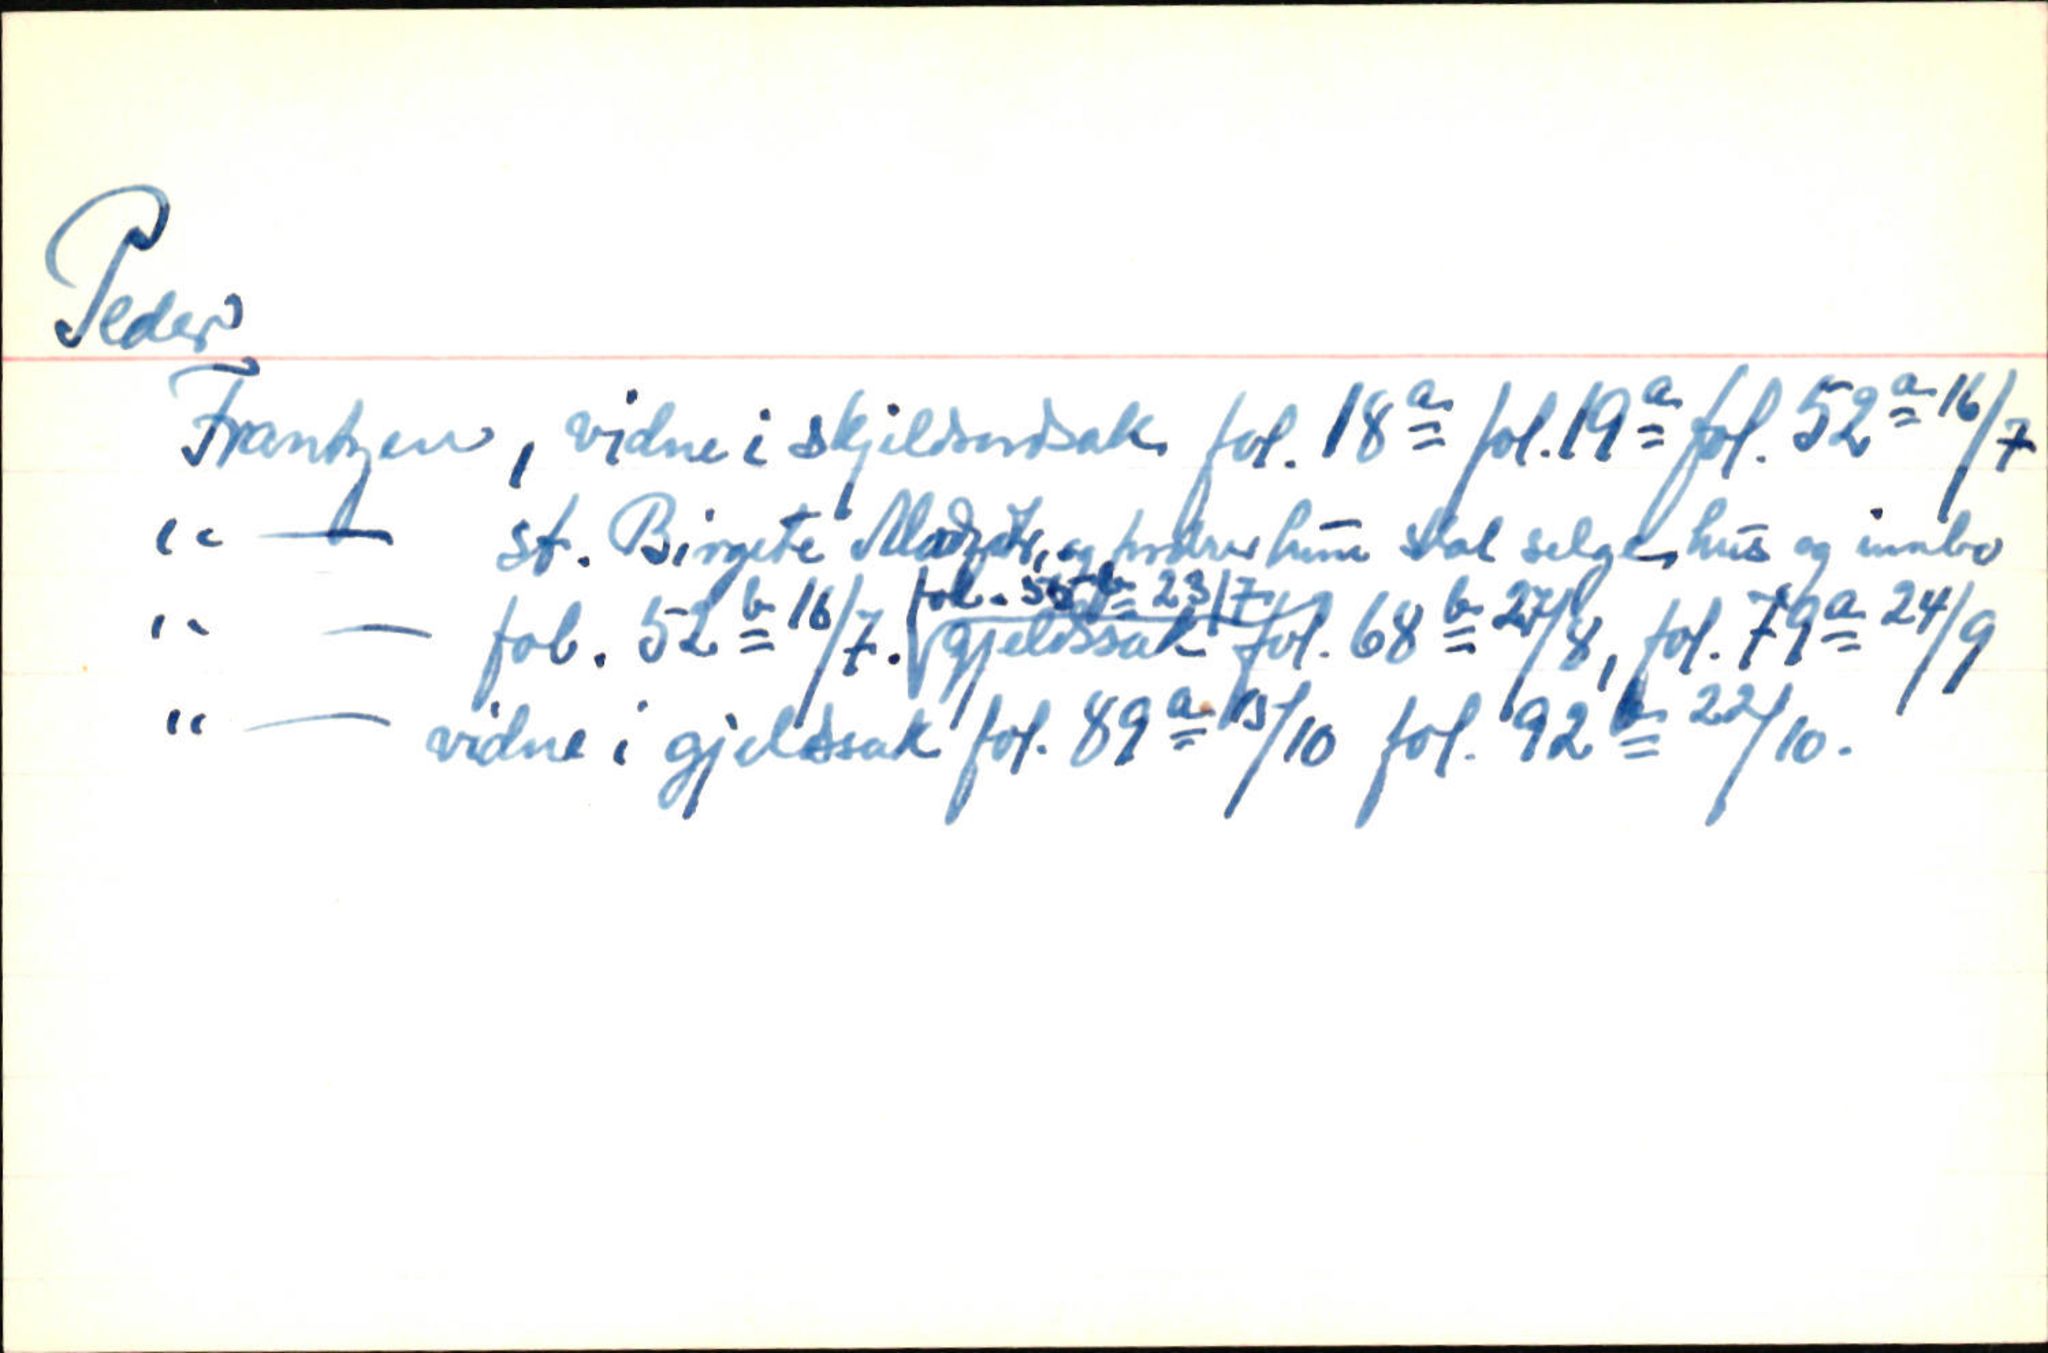 Peder
Frantzen, vidne i skjeldsordsak fol. 18 a fol. 19 a fol. 52 a 16/7
" — st. Birgete Madzdtr, og fordrer hun skal selge hus og innbo
fol. 55 b 23/7
" — fol. 52 b 16/7. gjeldssak fol. 68 b 27/8, fol. 79 a 24/9
" — vidne i gjeldssak fol. 89 a 15/10 fol. 92 b 22/10.